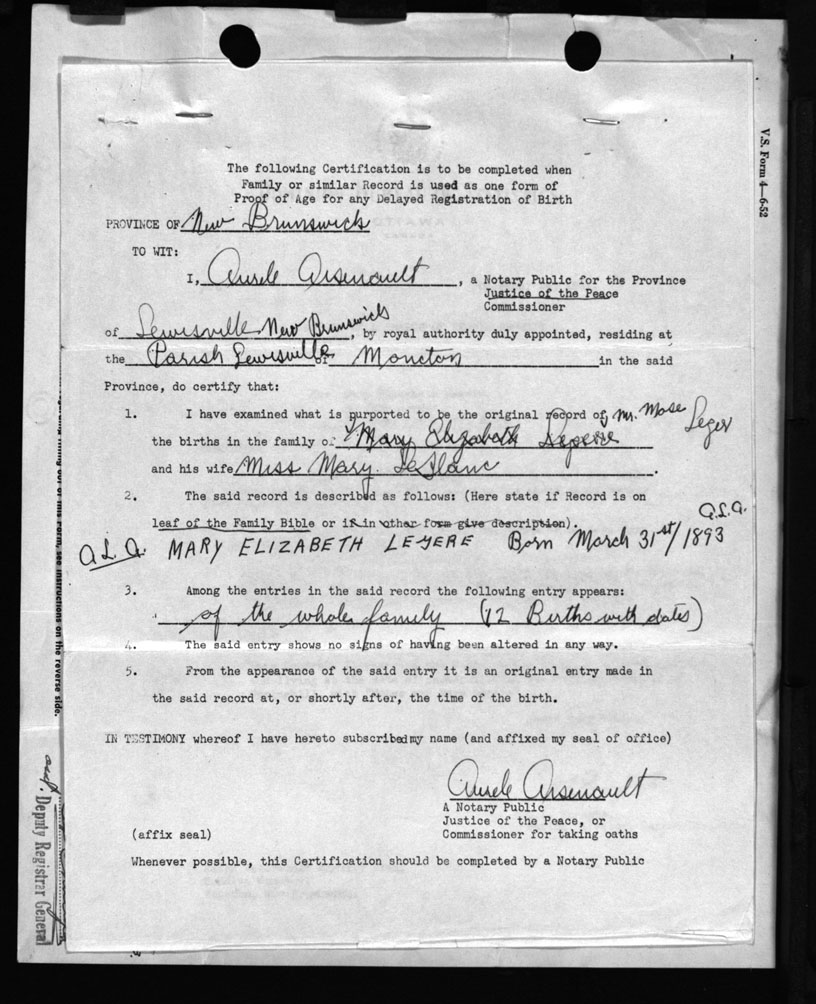 V.S. Form 4—6-52
The following Certification is to be completed when
Family or similar Record is used as one form of
Proof of Age for any Delayed Registration of Birth
PROVINCE OF New Brunswick
OTTAWA
CANADA
TO WIT:
I, Aurele Arsenault, a Notary Public for the Province
Justice of the Peace
Commissioner
of Lewisville New Brunswick, by royal authority duly appointed, residing at
the Parish Lewisville of Moncton in the said
Province, do certify that:
1. I have examined what is purported to be the original record of Mr. Mose Leger
the births in the family of Mary Elizabeth
and his wife Miss Mary LeBlanc.
2. The said record is described as follows: (Here state if Record is on
leaf of the Family Bible or if in other form give description). a.L.a.
a.L.a. MARY ELIZABETH LEGERE Born March 31st/1893
3. Among the entries in the said record the following entry appears:
of the whole family (12 Births with dates)
4. The said entry shows no signs of having been altered in any way.
5. From the appearance of the said entry it is an original entry made in
the said record at, or shortly after, the time of the birth.
IN TESTIMONY whereof I have hereto subscribed my name (and affixed my seal of office)
Aurele Arsenault
A Notary Public
Justice of the Peace, or
(affix seal) Commissioner for taking oaths
Whenever possible, this Certification should be completed by a Notary Public
out of this form, see instructions on the reverse side.
Deputy Registrar General